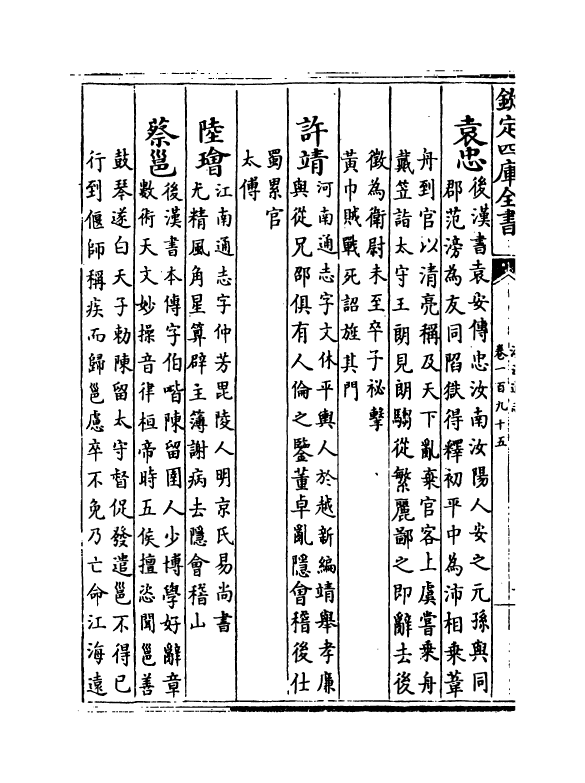 欽定四庫全書
卷一百九十五
袁忠 後漢書袁安傳忠汝南汝陽人安之元孫與同
郡范滂為友同陷獄得釋初平中為沛相乗葦
舟到官以清亮稱及天下亂棄官客上虞嘗乗舟
戴笠詣太守王朗見朗騶從繁麗鄙之即辭去後
徵為衛尉未至卒子祕擊
黃巾賊戰死詔旌其門
許靖 河南通志字文休平輿人於越新編靖舉孝廉
與從兄邵俱有人倫之鑒董卓亂隱會稽後仕
蜀累官
太傅
陸璯 江南通志字仲芳毘陵人明京氏易尚書
尤精風角星算辟主簿謝病去隱會稽山
蔡邕 後漢書本傳字伯喈陳留圉人少博學好辭章
數術天文妙操音律桓帝時五侯擅恣聞邕善
鼓琴遂白天子勅陳留太守督促發遣邕不得已
行到偃師稱疾而歸邕慮卒不免乃亡命江海遠